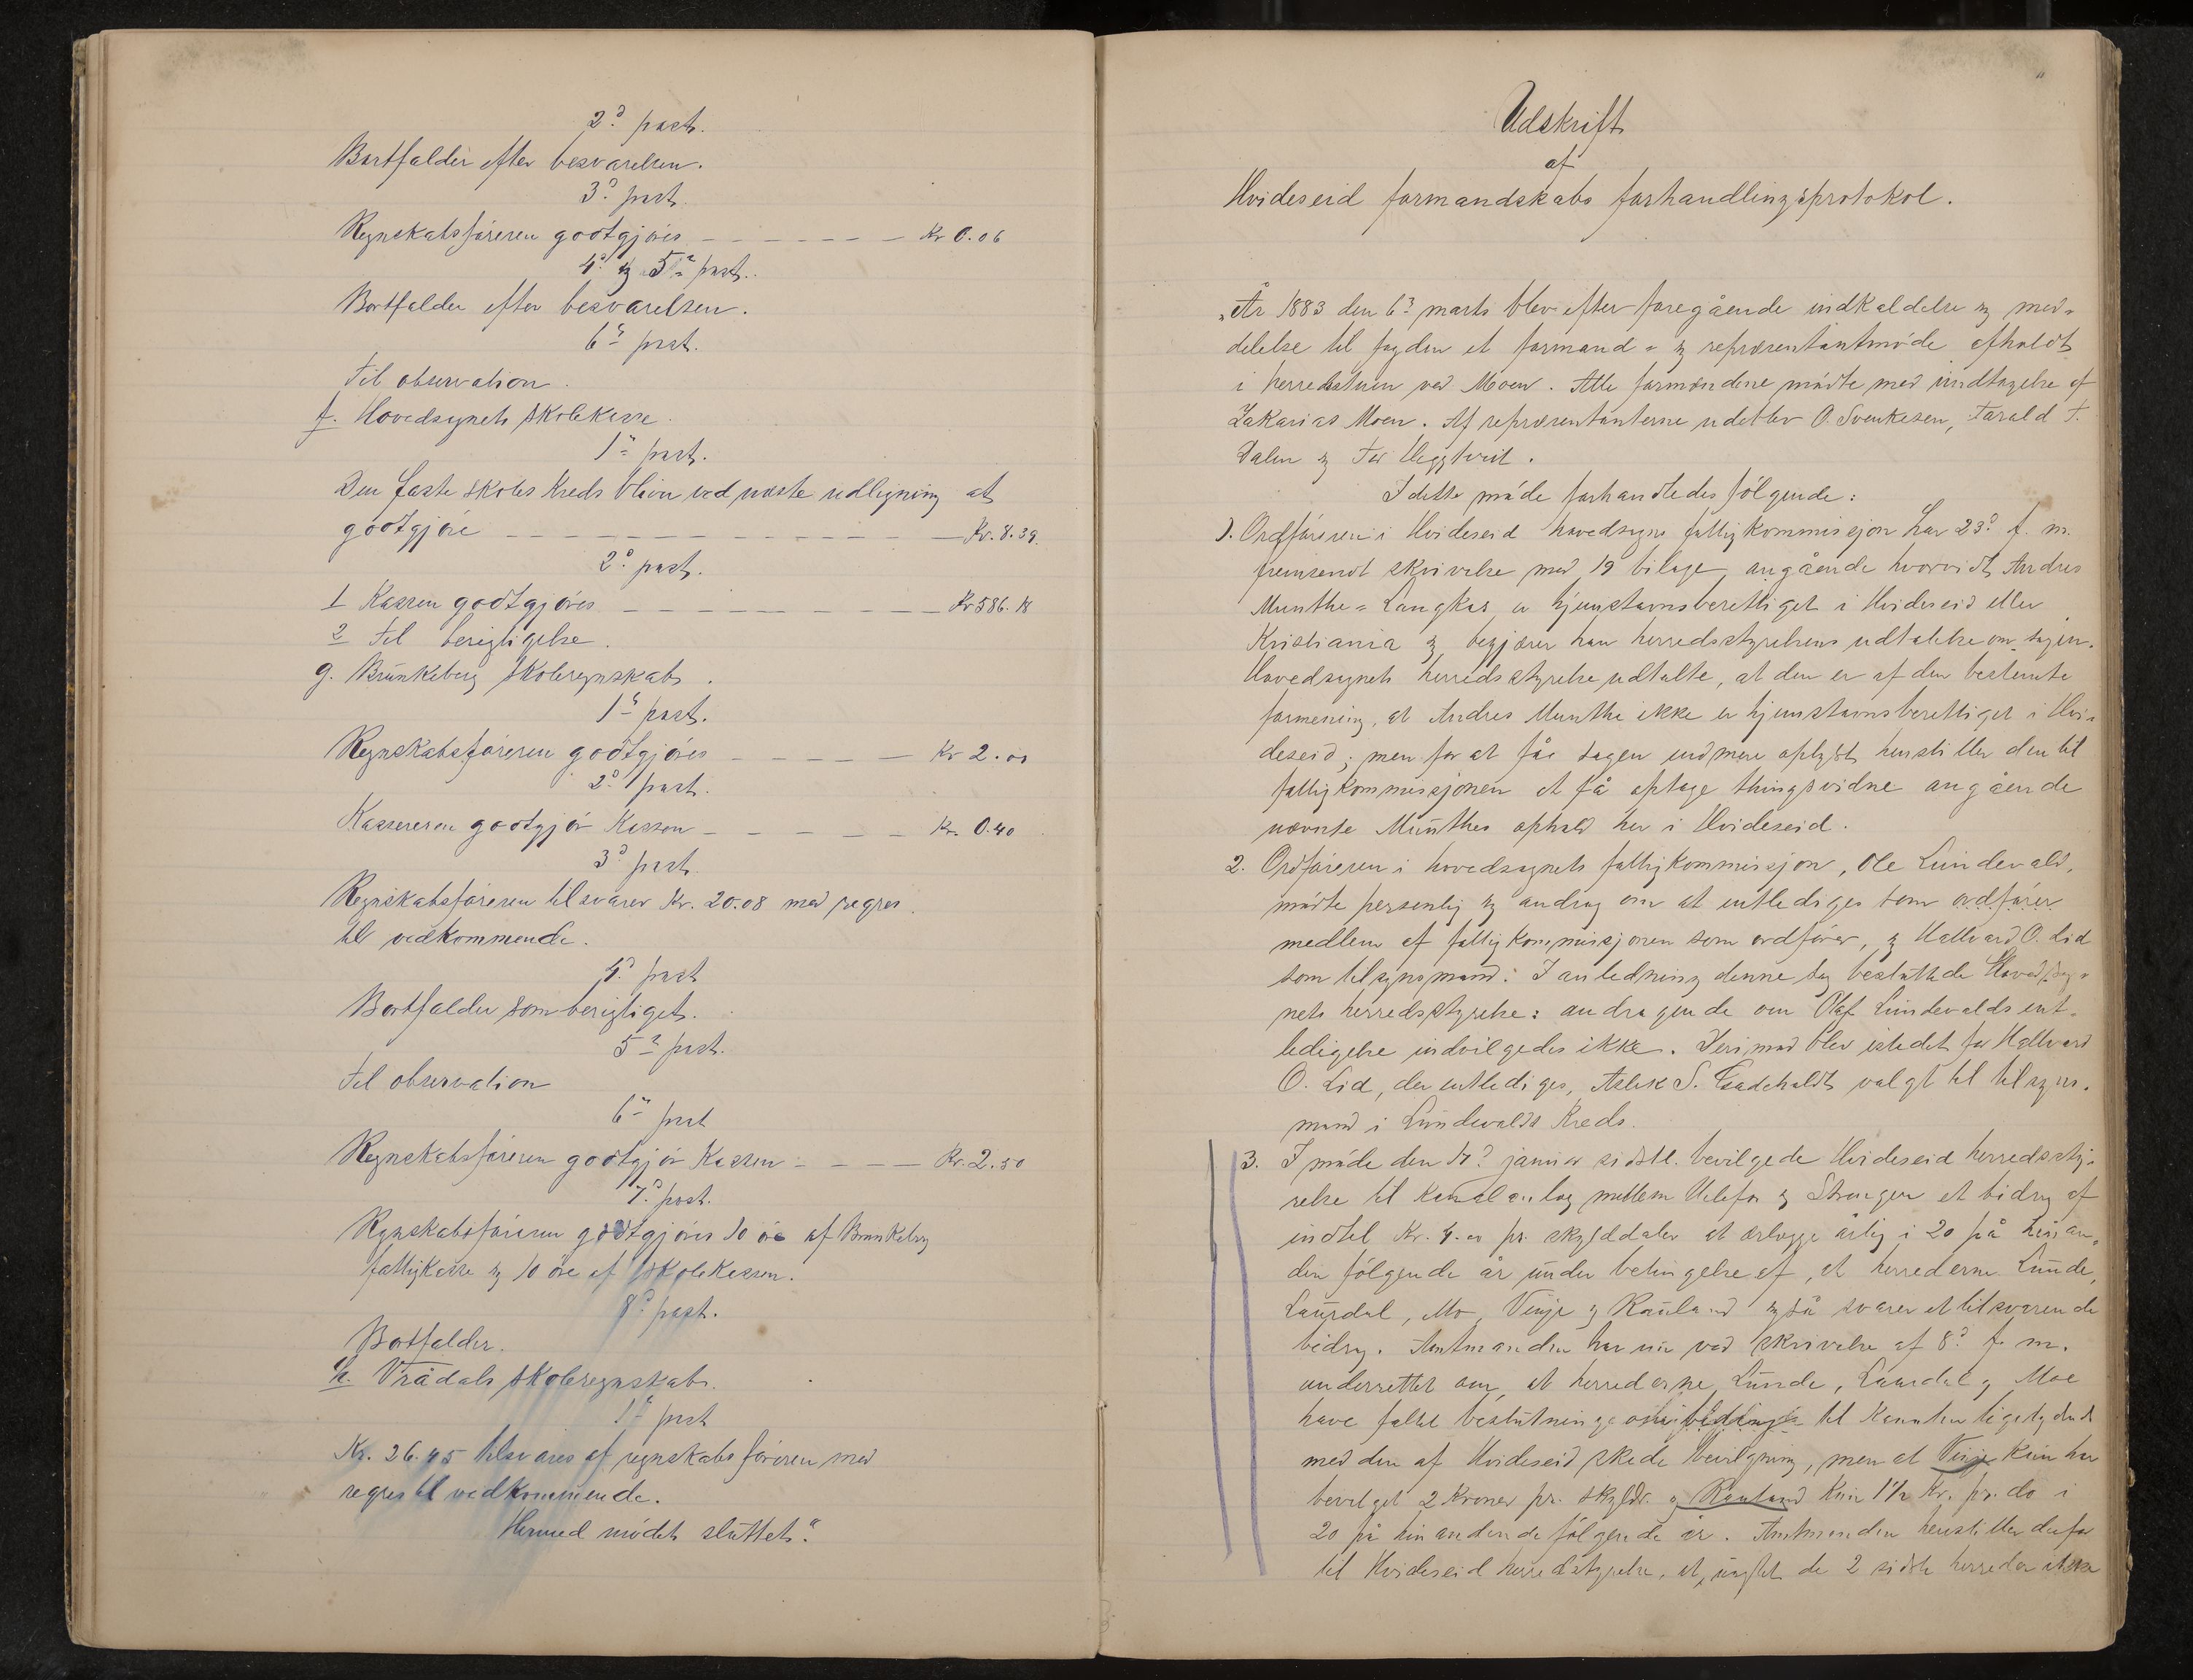 2? post.
Bortfalder efter besvarelsen.
3? post.
Regnskabsføreren godtgjøres – – – – – – – Kr 0.06
4? og 5? post.
Bortfalder efter besvarelsen.
6? post.
Til observation.
f. Hovedsognets skolekasse.
1? post.
Den faste skoles kreds bliver ved næste udligning at
godtgjøre – – – – – – – – – – – – – Kr. 8.39.
2? post.
1 Kassen godtgjøres – – – – – – – – – Kr 586.18
2 Til berigtigelse.
g. Brunkeberg skoleregnskab.
1? post.
Regnskabsføreren godtgjøres – – – – – Kr 2.00
2? post.
Kassereren godtgjør Kassen – – – – – Kr. 0.40
3? post.
Regnskabsføreren tilsvarer Kr. 20.08 med regres
til vedkommende.
4? post
Bortfalder som berigtiget.
5? post.
Til observation
6? post
Regnskabsføreren godtgjør Kassen – – – – Kr. 2.50
7? post.
Regnskabsføreren godtgjøres 10 øre af Brunkeberg
fattigkasse og 10 øre af skolekassen.
8? post.
Bortfalder.
h. Vrådals skoleregnskab.
1? post
Kr. 26.45 tilsvares af regnskabsføreren med
regres til vedkommende.
Hermed mødet sluttet."
Udskrift
af
Hvideseid formandskabs forhandlingsprotokol.
"År 1883 den 6? marts blev efter foregående indkaldelse og med=
delelse til fogden et formand= og repræsentantmøde afholdt
i herredstuen ved Moen. Alle formændene mødte med undtagelse af
Zakarias Moen. Af repræsentanterne udeblev O. Svenkesen, Tarald T.
Dalen og Tor Heggtveit.
I dette møde forhandledes følgende:
1. Ordføreren i Hvideseid hovedsogns fattigkommissjon har 23? f. m.
fremsendt skrivelse med 19 bilage, angående hvorvidt Andres
Munthe=Langkås er hjemstavnsberettiget i Hvideseid eller
Kristiania og begjærer han herredsstyrelsens udtalelse om sagen.
Hovedsognets herredsstyrelse udtalte, at den er af den bestemte
formening, at Andres Munthe ikke er hjemstavnsberettiget i Hvi=
deseid; men for at få sagen endmere oplyst henstiller den til
fattigkommissjonen at få optage thingsvidne angående
nævnte Munthes ophold her i Hvideseid.
2. Ordføreren i hovedsognets fattigkommissjon, Ole Lundevald,
mødte personlig og androg om at entlediges som ordfører
medlem af fattigkommissjonen som ordfører, og Hallvard O. Lid
som tilsynsmand: I anledning denne sag besluttede Hovedsog=
nets herredsstyrelse: andragende om Olaf Lundevalds ent=
ledigelse indvilgedes ikke. Derimod blev istedet for Hallvard
O. Lid, der entlediges, Aslak S. valgt til tilsyns=
mand i Lundevalds Kreds.
3. I møde den januar sidstl. bevilgede Hvideseid herredssty=
relse til kanalanlæg mellem Ulefos og Strengen et bidrag af
indtil Kr. 4.00 pr. skylddaler at erlægge årlig i 20 på hinan=
den følgende år under betingelse af, at herrederne Lunde,
Laurdal, Mo, Vinje og Rauland også svarer et tilsvarende
bidrag. Amtmanden har nu ved skrivelse af 8? f. m.
underrettet om, at herrederne Lunde, Laurdal og Moe
have fattet beslutninge om bidrag til Kanalen ligelydende
med den af Hvideseid skede bevilgning, men at Vinje kun har
bevilget 2 Kroner pr. skyldr. og Rauland kun 1½ Kr. pr. do i
20 på hinandende følgende år. Amtmanden henstiller derfor
til Hvideseid herredstyrelse, at, uagtet de 2 sidste herreder